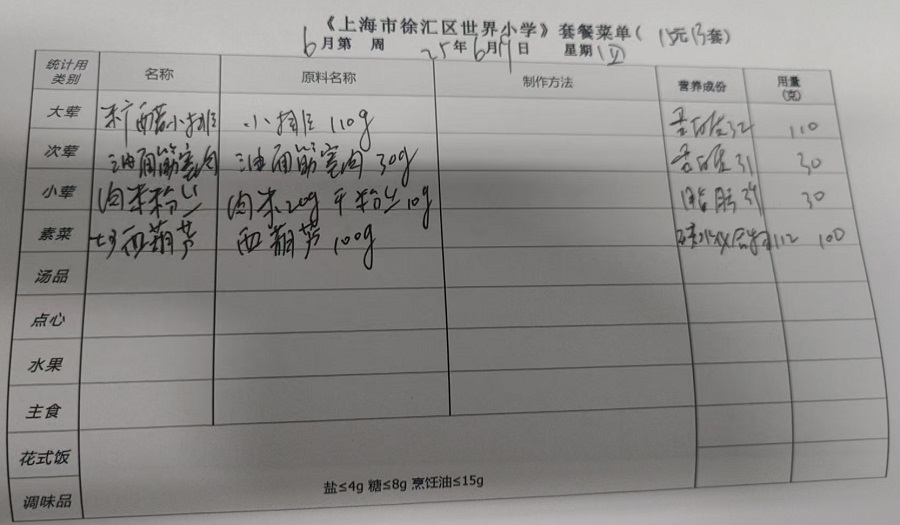 《上海市徐汇区世界小学》套餐菜单（15元B套）
6月第 周 25年6月 日 星期
统计用类别 名称 原料名称 制作方法 营养成份 用量（克）
大荤 小排 小排 110g 蛋白质32 110
次荤 油面筋塞肉 油面筋塞肉 30g 蛋白质31 30
小荤 肉末粉丝 肉末20g 干粉丝10g 脂肪39 30
素菜 西葫芦 西葫芦 100g 碳水化合物112 100
汤品
点心
水果
主食
花式饭
调味品 盐≤4g 糖≤8g 烹饪油≤15g